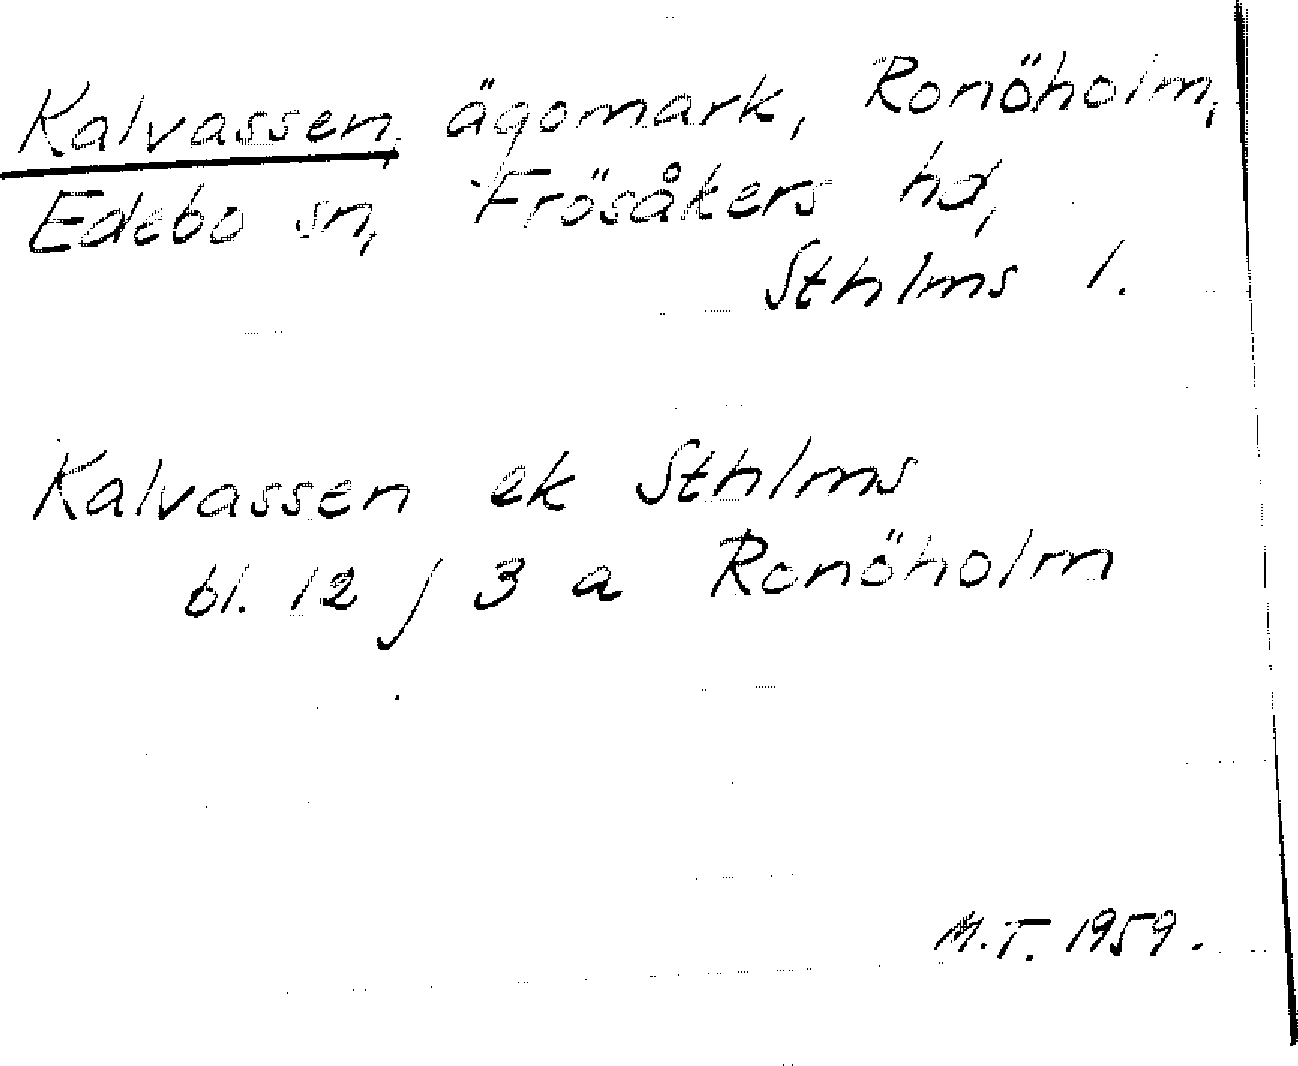 Kalvassen, ägomark, Ronöholm,
Edebo sn, Frösåkers hd,
Sthlms l.
Kalvassen ek Sthlms
bl. 12 j 3 a Ronöholm
M.T. 1959.